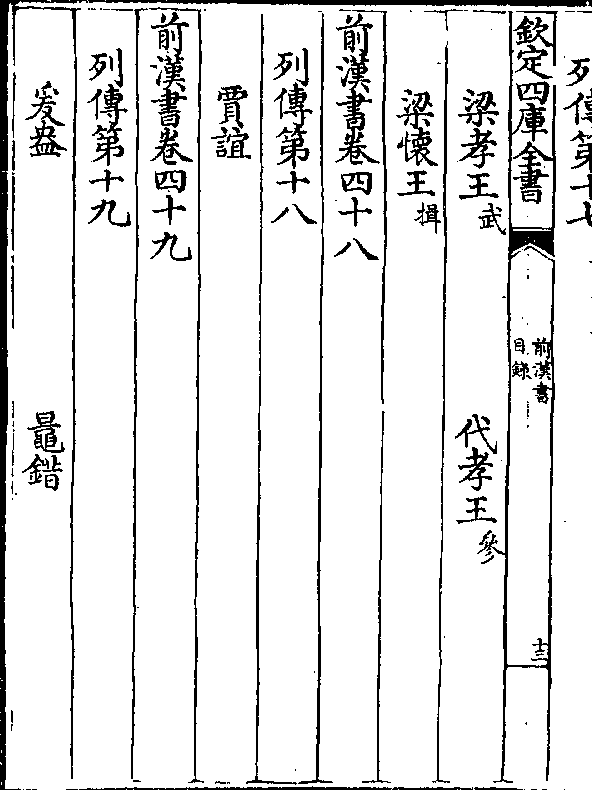 列傳第十七
欽定四庫全書
前漢書
目錄
十三
梁孝王武
代孝王參
梁懷王揖
前漢書卷四十八
列傳第十八
賈誼
前漢書卷四十九
列傳第十九
爰盎
鼂錯